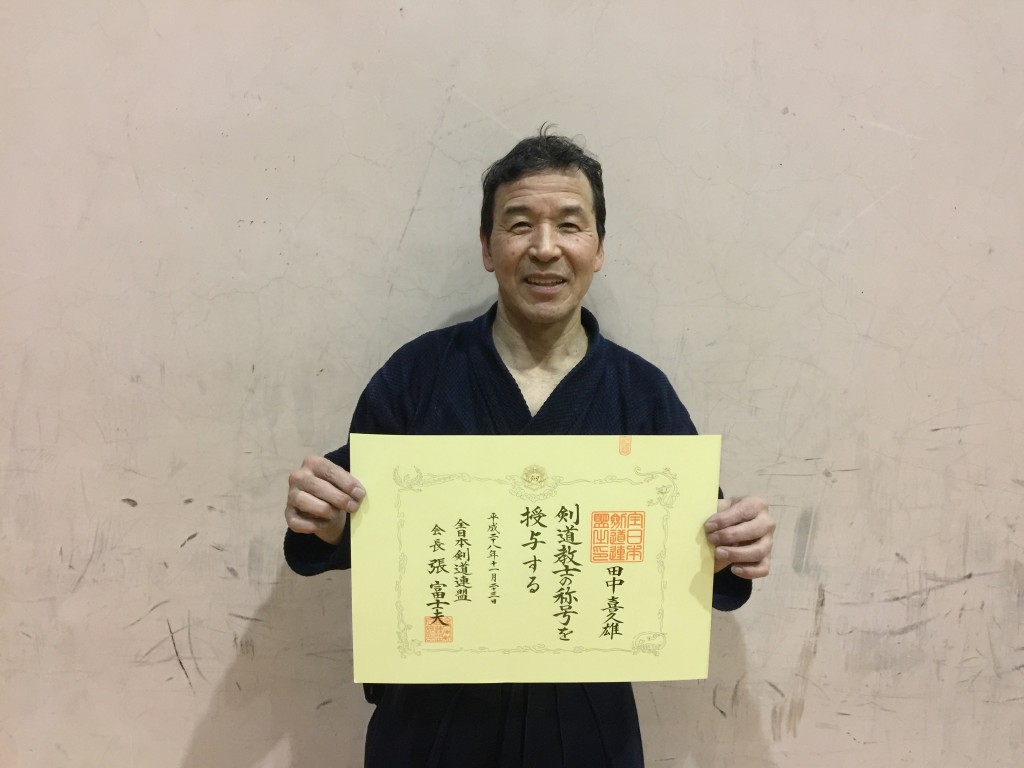 全日本剣道連盟之印
田中喜久雄
剣道教士の称号を
授与する
平成二十八年十一月二十三日
全日本剣道連盟
会長 張富士夫